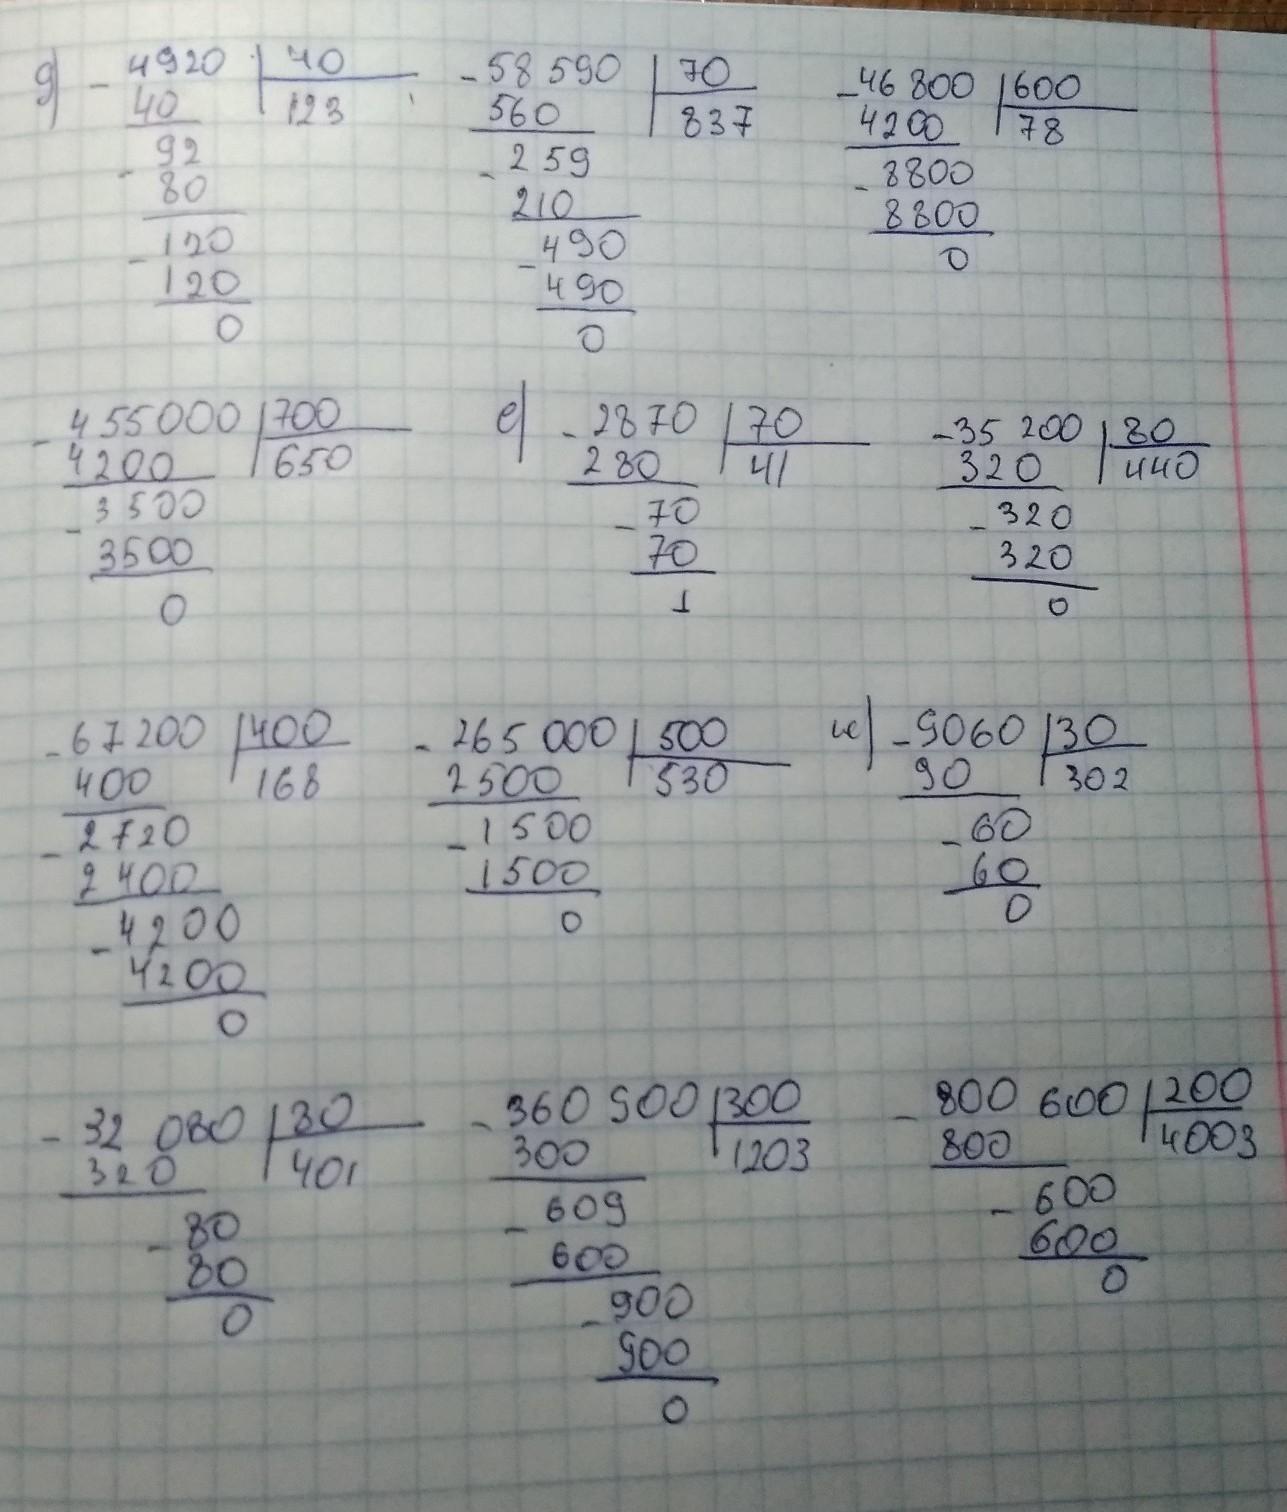 д) - 4920 | 40 - 58 590 | 70 - 46 800 | 600
40 123 560 837 4200 78
- 92 - 259 - 8800
80 210 8800
- 120 - 490 0
120 490
0 0
- 455000 | 700 е) - 2870 | 70 - 35 200 | 80
4200 650 280 41 320 440
- 3500 - 70 - 320
3500 70 320
0 1 0
- 67200 | 400 - 265 000 | 500 ж) - 9060 | 30
400 168 2500 530 90 302
- 2720 - 1500 - 60
2400 1500 60
- 4200 0 0
4200
0
- 32 080 | 80 - 360 900 | 300 - 800 600 | 200
320 401 300 1203 800 4003
- 80 - 609 - 600
80 600 600
0 - 900 0
900
0